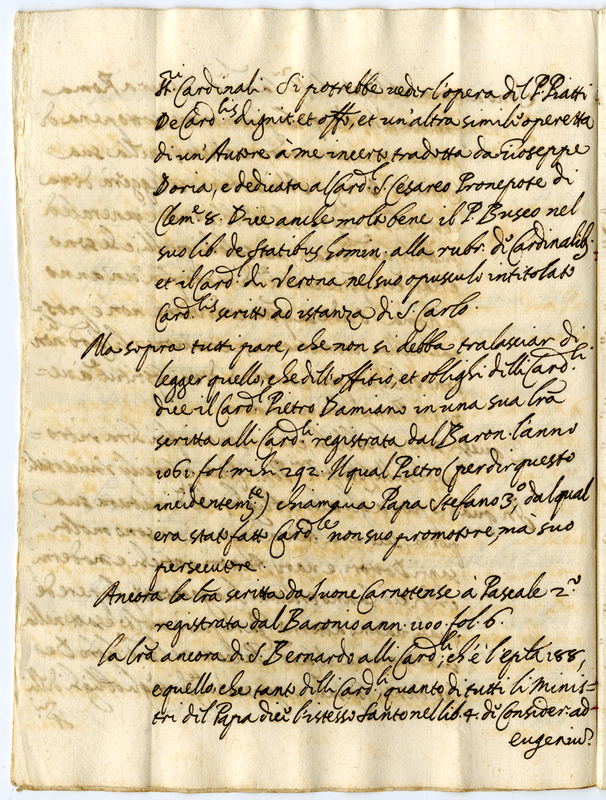 ss.ri Cardinali. Si potrebbe veder l'opera del P. Piatti
De Card.lis dignit. et offo, et un'altra simile operetta
di un'Autore à me incerto tradotta da Gioseppe
Doria, e dedicata al Card. S. Cesareo Pronepote di
Clem.e 8. Dice anche molto bene il P. Buseo nel
suo lib. de statibus homin. alla rubr. de Cardinalib.
et il Card. di Verona nel suo opusculo intitolato
Card.lis scritto ad istanza di S. Carlo.
Ma sopra tutti pare, che non si debba tralasciar di
legger quello, che dell'offitio, et oblighi delli Card.li
dice il Card.l Pietro Damiano in una sua lra
scritta alli Card.li registrata dal Baron. l'anno
1061. fol. mihi 292. Il qual Pietro (per dir questo
incidentem.te) chiamava Papa Stefano 3.o, dal qual
era stato fatto Card.le non suo promotore, mà suo
persecutore.
Ancora la lra scritta da Ivone Carnotense à Pascale 2.o
registrata dal Baronio ann. 1100. fol. 6.
la lra ancora di S. Bernardo alli Card.li, ch'è l'epla 188,
e quello, che tanto delli Card.li, quanto di tutti li Minis=
tri del Papa dice l'istesso Santo nel lib. 4. de Consider. ad
eugeniū.